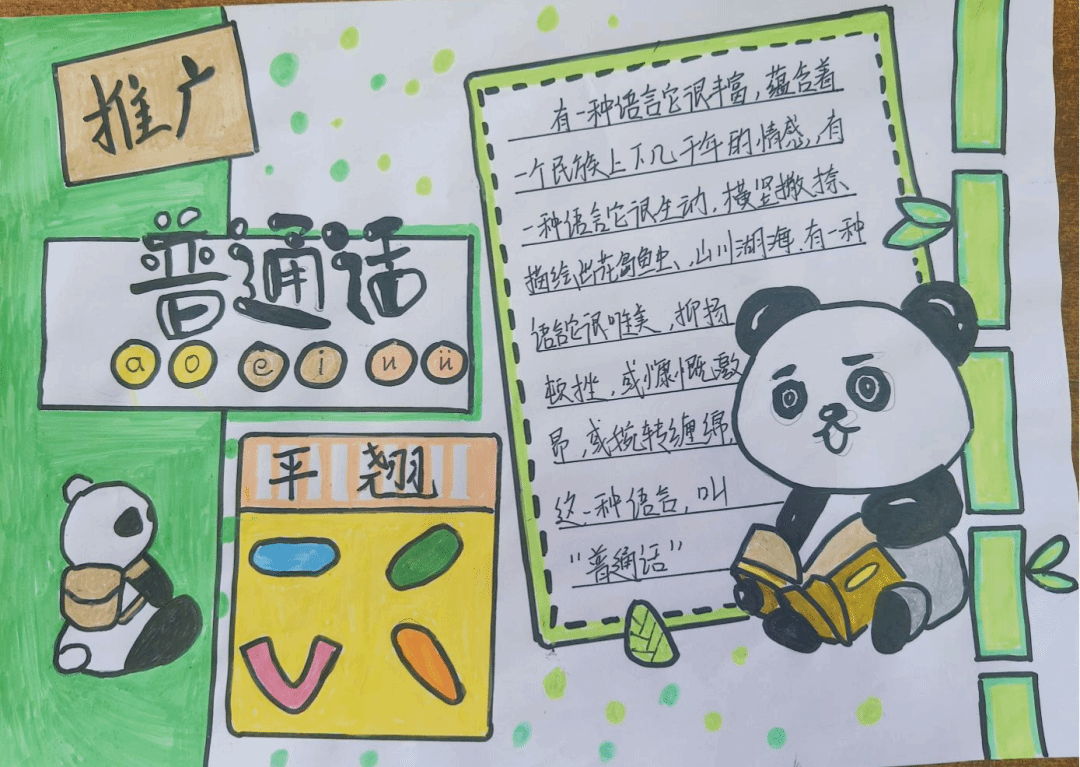 推广
普通话
a o e i u ü
平 翘
有一种语言它很丰富，蕴含着
一个民族上下几千年的情感，有
一种语言它很生动，横竖撇捺
描绘出花鸟鱼虫、山川湖海．有一种
语言它很唯美，抑扬
顿挫，或慷慨激
昂，或婉转缠绵，
这一种语言，叫
“普通话”